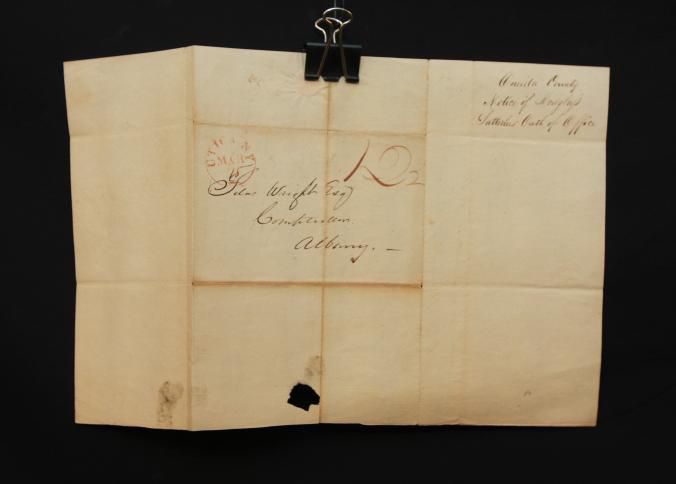 Oneida County
Notice of Douglass
Satterlees Oath of Office
UTICA N.Y
MAR
18
12½
Silas Wright Esqr
Comptroller.
Albany. —